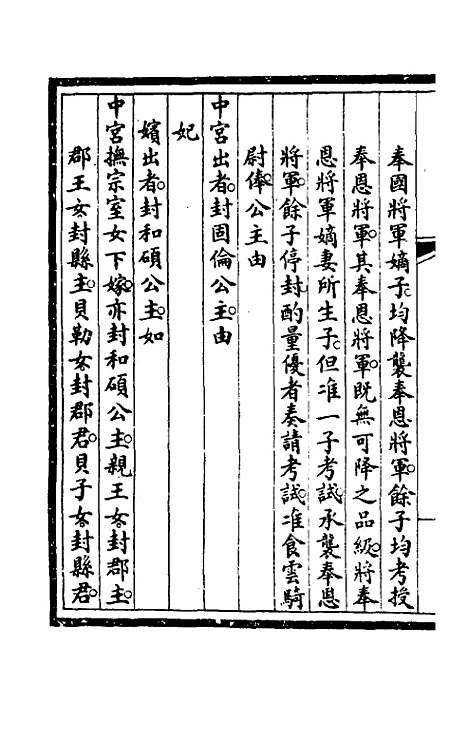 奉國將軍嫡子均降襲奉恩將軍餘子均考授
奉恩將軍其奉恩將軍既無可降之品級將奉
恩將軍嫡妻所生子但准一子考試承襲奉恩
將軍餘子停封酌量優者奏請考試准食雲騎
尉俸公主由
中宮出者封固倫公主由
妃
嬪出者封和碩公主如
中宮撫宗室女下嫁亦封和碩公主親王女封郡主
郡王女封縣主貝勒女封郡君貝子女封縣君